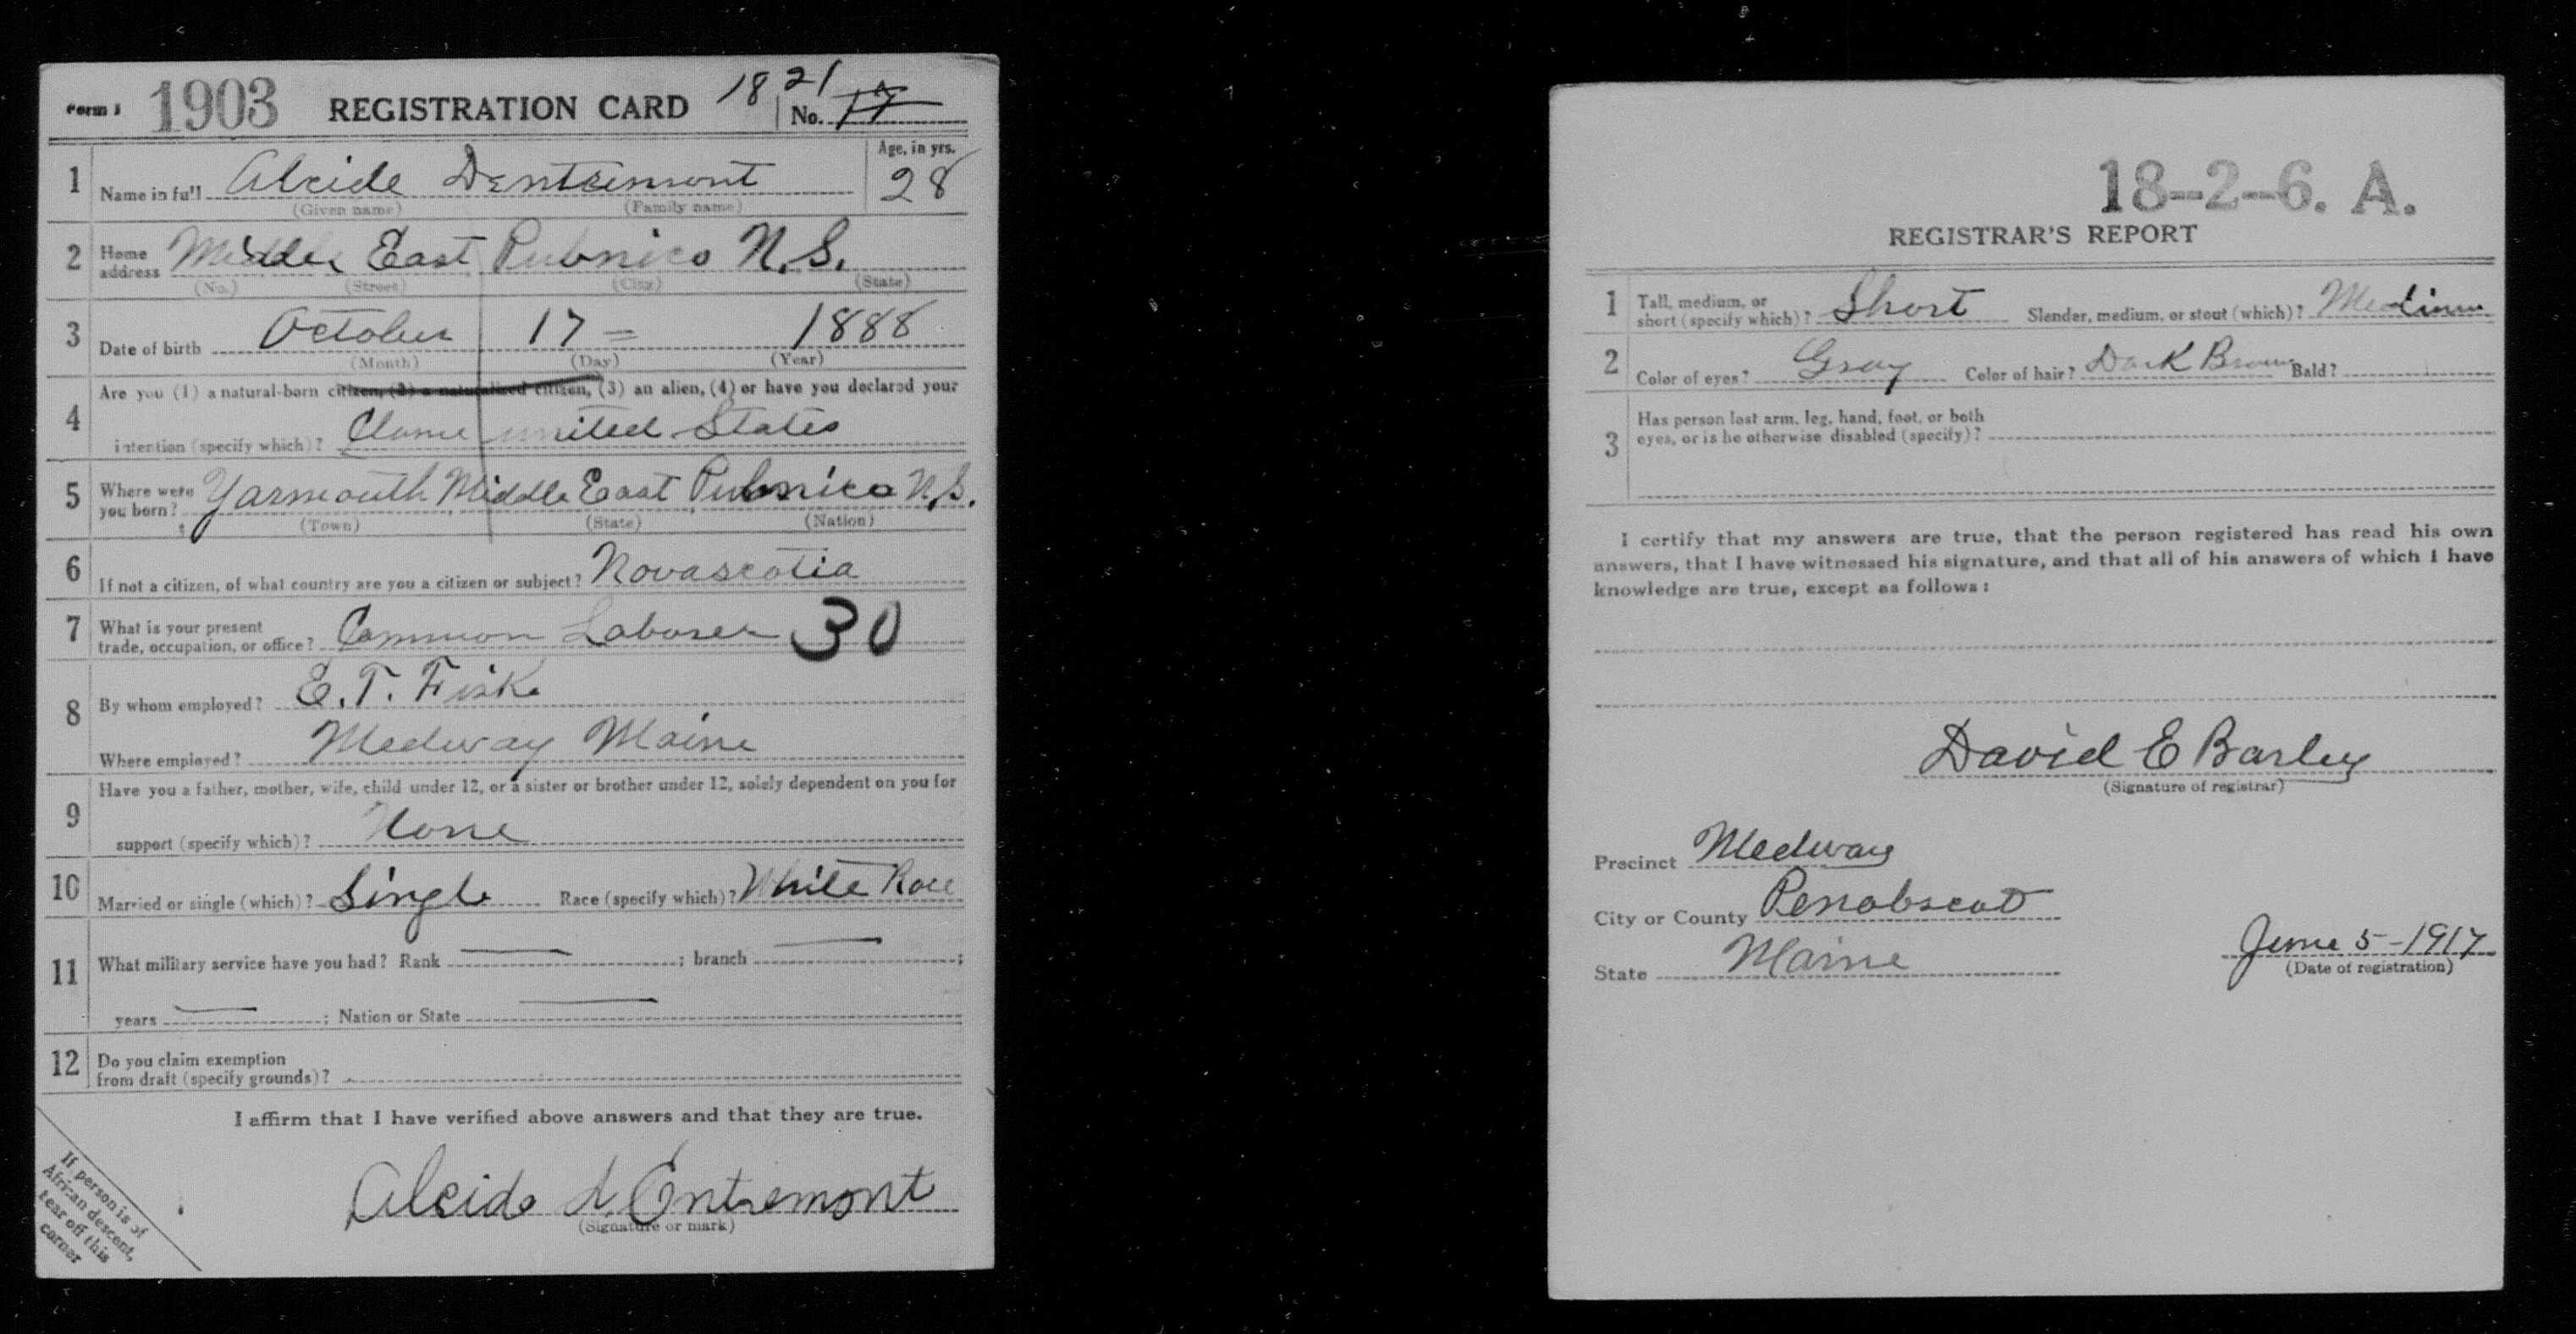 Form 1 1903 REGISTRATION CARD 1821 No. 17
1 Name in full Alcide Dentremont Age, in yrs. 28
(Given name) (Family name)
2 Home address Middle East Pubnico N.S.
(No.) (Street) (City) (State)
3 Date of birth October 17 = 1888
(Month) (Day) (Year)
4 Are you (1) a natural-born citizen, (2) a naturalized citizen, (3) an alien, (4) or have you declared your
intention (specify which)? Clame united States
5 Where were you born? Yarmouth Middle East Pubnico N.S.
(Town) (State) (Nation)
6 If not a citizen, of what country are you a citizen or subject? Novascotia
7 What is your present trade, occupation, or office? Common Laborer 30
8 By whom employed? E. T. Fisk
Where employed? Medway Maine
9 Have you a father, mother, wife, child under 12, or a sister or brother under 12, solely dependent on you for
support (specify which)? None
10 Married or single (which)? Single Race (specify which)? White Race
11 What military service have you had? Rank — ; branch — ;
years — ; Nation or State —
12 Do you claim exemption
from draft (specify grounds)?
I affirm that I have verified above answers and that they are true.
Alcide d. Entremont
(Signature or mark)
If person is of
African descent,
tear off this
corner
18--2--6. A.
REGISTRAR'S REPORT
1 Tall, medium, or short (specify which)? Short Slender, medium, or stout (which)? Medium
2 Color of eyes? Gray Color of hair? Dark Brown Bald?
3 Has person lost arm, leg, hand, foot, or both
eyes, or is he otherwise disabled (specify)?
I certify that my answers are true, that the person registered has read his own
answers, that I have witnessed his signature, and that all of his answers of which I have
knowledge are true, except as follows:
David E Barley
(Signature of registrar)
Precinct Medway
City or County Penobscot
State Maine
June 5-1917
(Date of registration)